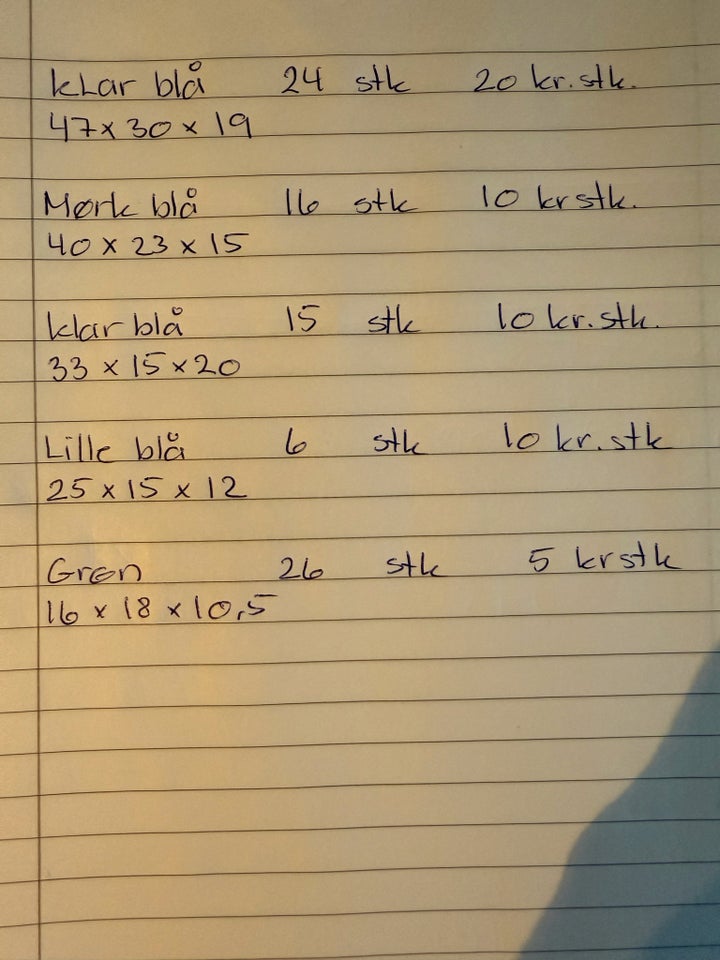 kLar blå 24 stk 20 kr. stk.
47 x 30 x 19
Mørk blå 16 stk 10 kr stk.
40 x 23 x 15
klar blå 15 stk 10 kr. stk.
33 x 15 x 20
Lille blå 6 stk 10 kr. stk
25 x 15 x 12
Grøn 26 stk 5 kr stk
16 x 18 x 10,5